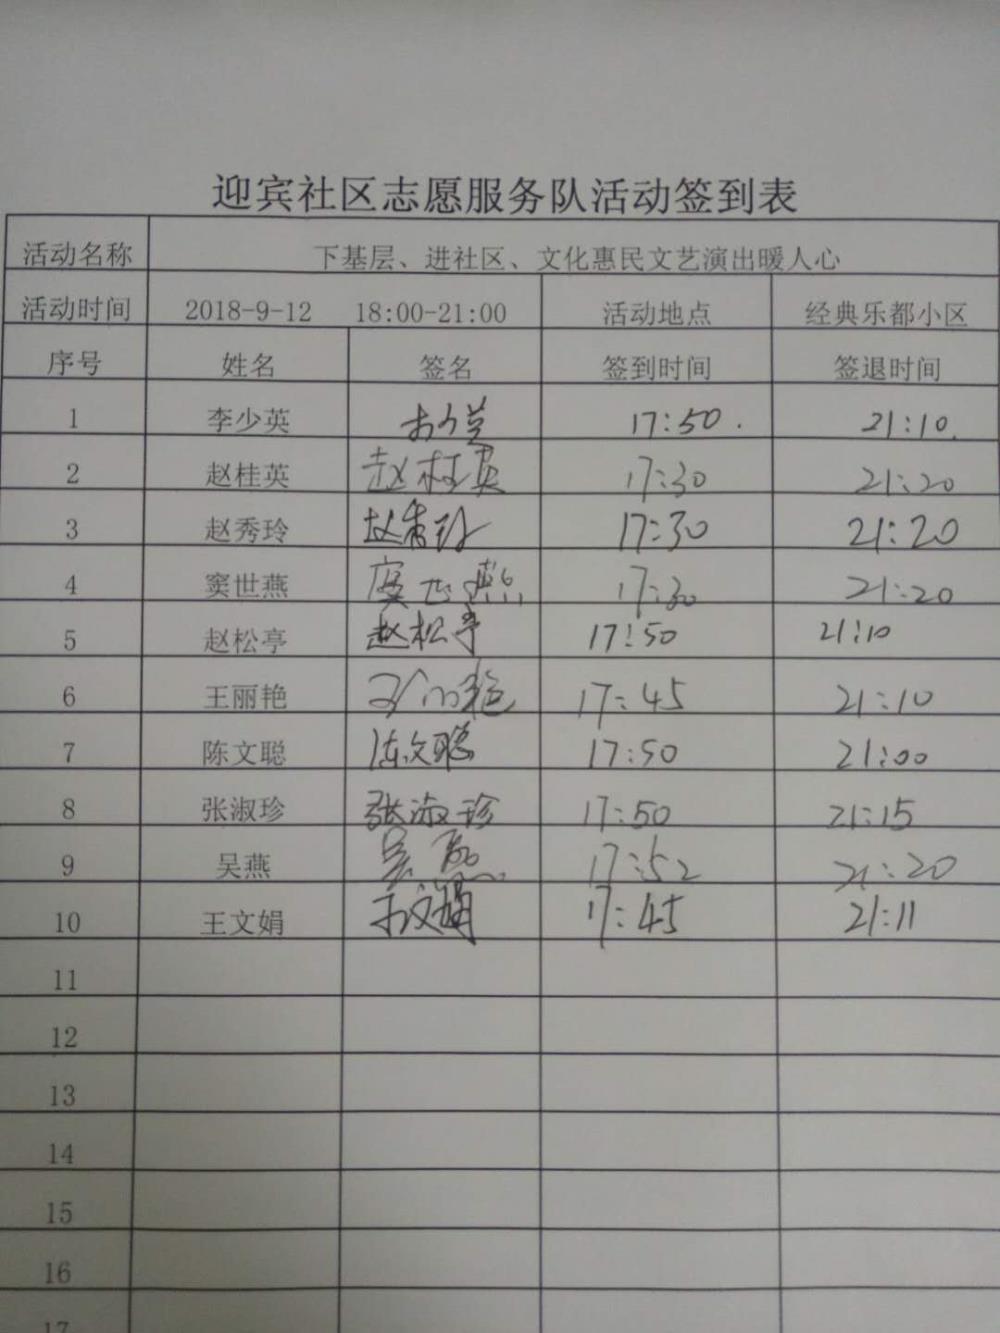 迎宾社区志愿服务队活动签到表
活动名称 下基层、进社区、文化惠民文艺演出暖人心
活动时间 2018-9-12 18:00-21:00 活动地点 经典乐都小区
序号 姓名 签名 签到时间 签退时间
1 李少英 17:50. 21:10.
2 赵桂英 赵桂英 17:30 21:20
3 赵秀玲 赵秀玲 17:30 21:20
4 窦世燕 17:30 21:20
5 赵松亭 赵松亭 17:50 21:10
6 王丽艳 17:45 21:10
7 陈文聪 陈文聪 17:50 21:00
8 张淑珍 张淑珍 17:50 21:15
9 吴燕 吴燕 17:52 21:20
10 王文娟 王文娟 17:45 21:11
11
12
13
14
15
16
17